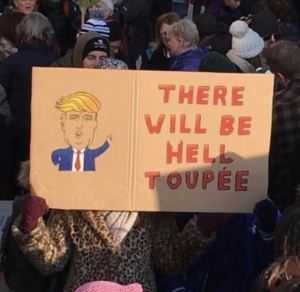 THERE
WILL BE
HELL
TOUPÉE